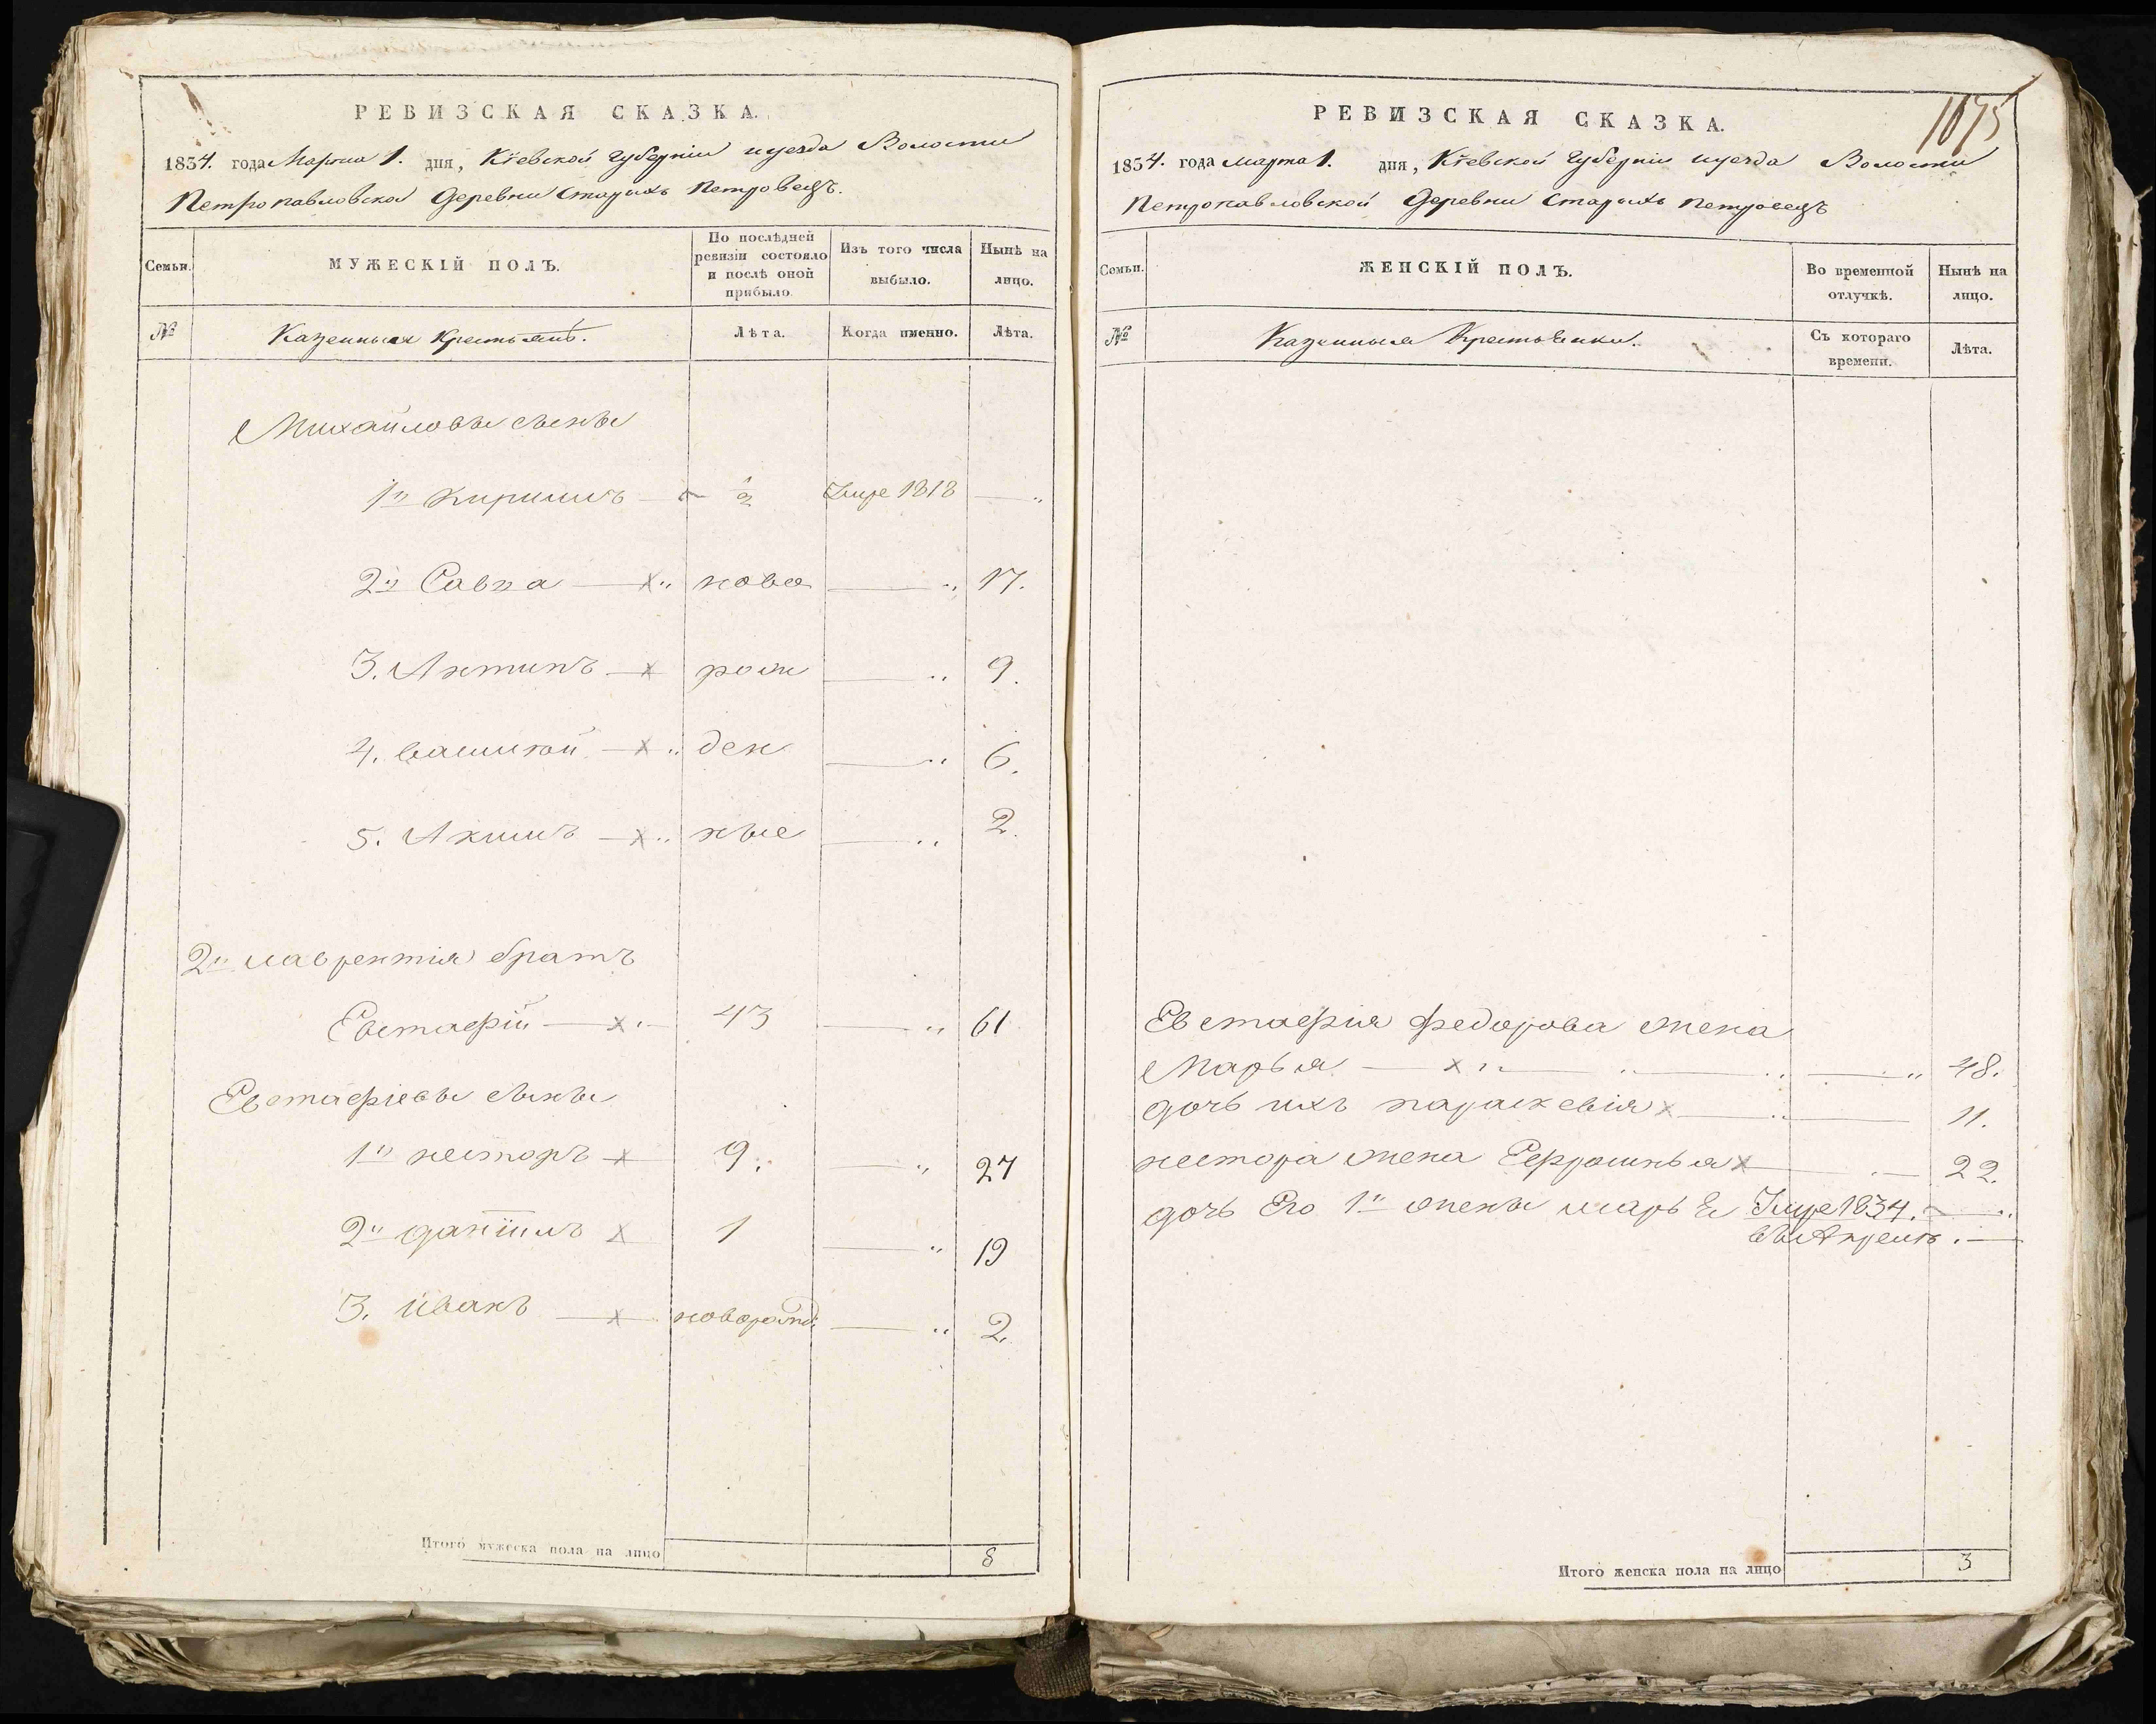 РЕВИЗСКАЯ СКАЗКА.
1834. года Марта 1. дня, Кіевской Губерніи и уезда Волости
Петропавловской Деревни Старыхъ Петровецъ.
Семьи.
МУЖЕСКІЙ ПОЛЪ.
По послѣдней ревизіи состояло и послѣ оной прибыло.
Изъ того числа выбыло.
Нынѣ на лицо.
№
Казенныхъ Крестьянъ.
Лѣта.
Когда именно.
Лѣта.
Михайловы сыны
1й Кирилъ 1/2 Умре 1818
2й Савка ново 17.
3. Антипъ рож 9.
4. ден 6.
5. Акимъ ные 2.
2й Лаврентія братъ
Евстафій 43 61
Евстафіевы сыны
1й Несторъ 9. 27
2й Даніилъ 1 19
3. Иванъ новорожд: 2.
Итого мужеска пола на лицо 8
1075
РЕВИЗСКАЯ СКАЗКА.
1834. года марта 1. дня, Кіевской Губерніи и уезда Волости
Петропавловской Деревни Старыхъ Петровецъ
Семьи.
ЖЕНСКІЙ ПОЛЪ.
Во временной отлучкѣ.
Нынѣ на лицо.
№
Казенныя Крестьянки.
Съ котораго времени.
Лѣта.
Евстафия Федорова жена
Марья 48.
дочь ихъ параскевія 11.
нестора жена Еефросинья 22.
дочь Его 1й жены Умре 1834.
въ Апреле.
Итого женска пола на лицо 3